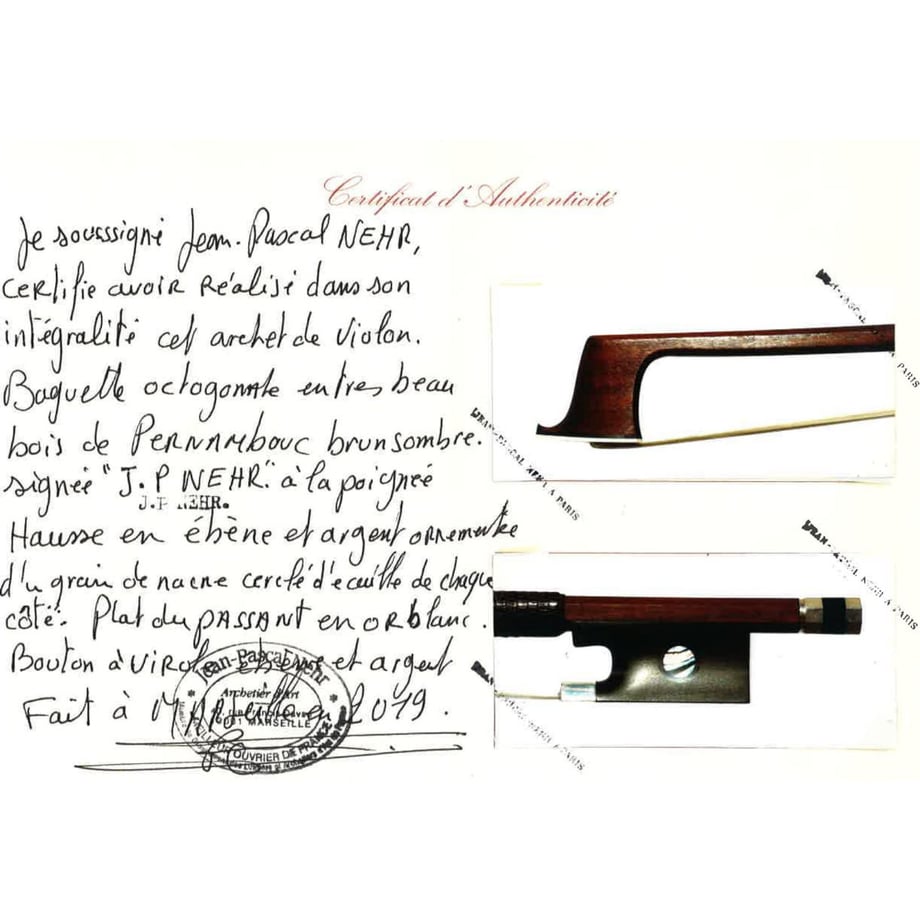 Certificat d'Authenticité
Je sousssigné Jean-Pascal NEHR,
certifie avoir réalisé dans son
intégralité cet archet de violon.
Baguette octogonale en tres beau
bois de PERNAMBOUC brun sombre.
signée "J.P NEHR." à la poignée
J.P. NEHR.
Hausse en ébène et argent ornementée
d'un grain de nacre cerclé d'ecaille de chaque
côté. Plat du PASSANT en or blanc.
Bouton à virole ebène et argent
Fait à Marseille en 2019.
Jean-Pascal Nehr
Archetier d'Art
MARSEILLE
MEILLEUR OUVRIER DE FRANCE
JEAN-PASCAL
A PARIS
JEAN-PASCAL NEHR A PARIS
JEAN-PASCAL NEHR A PARIS
NEHR A PARIS